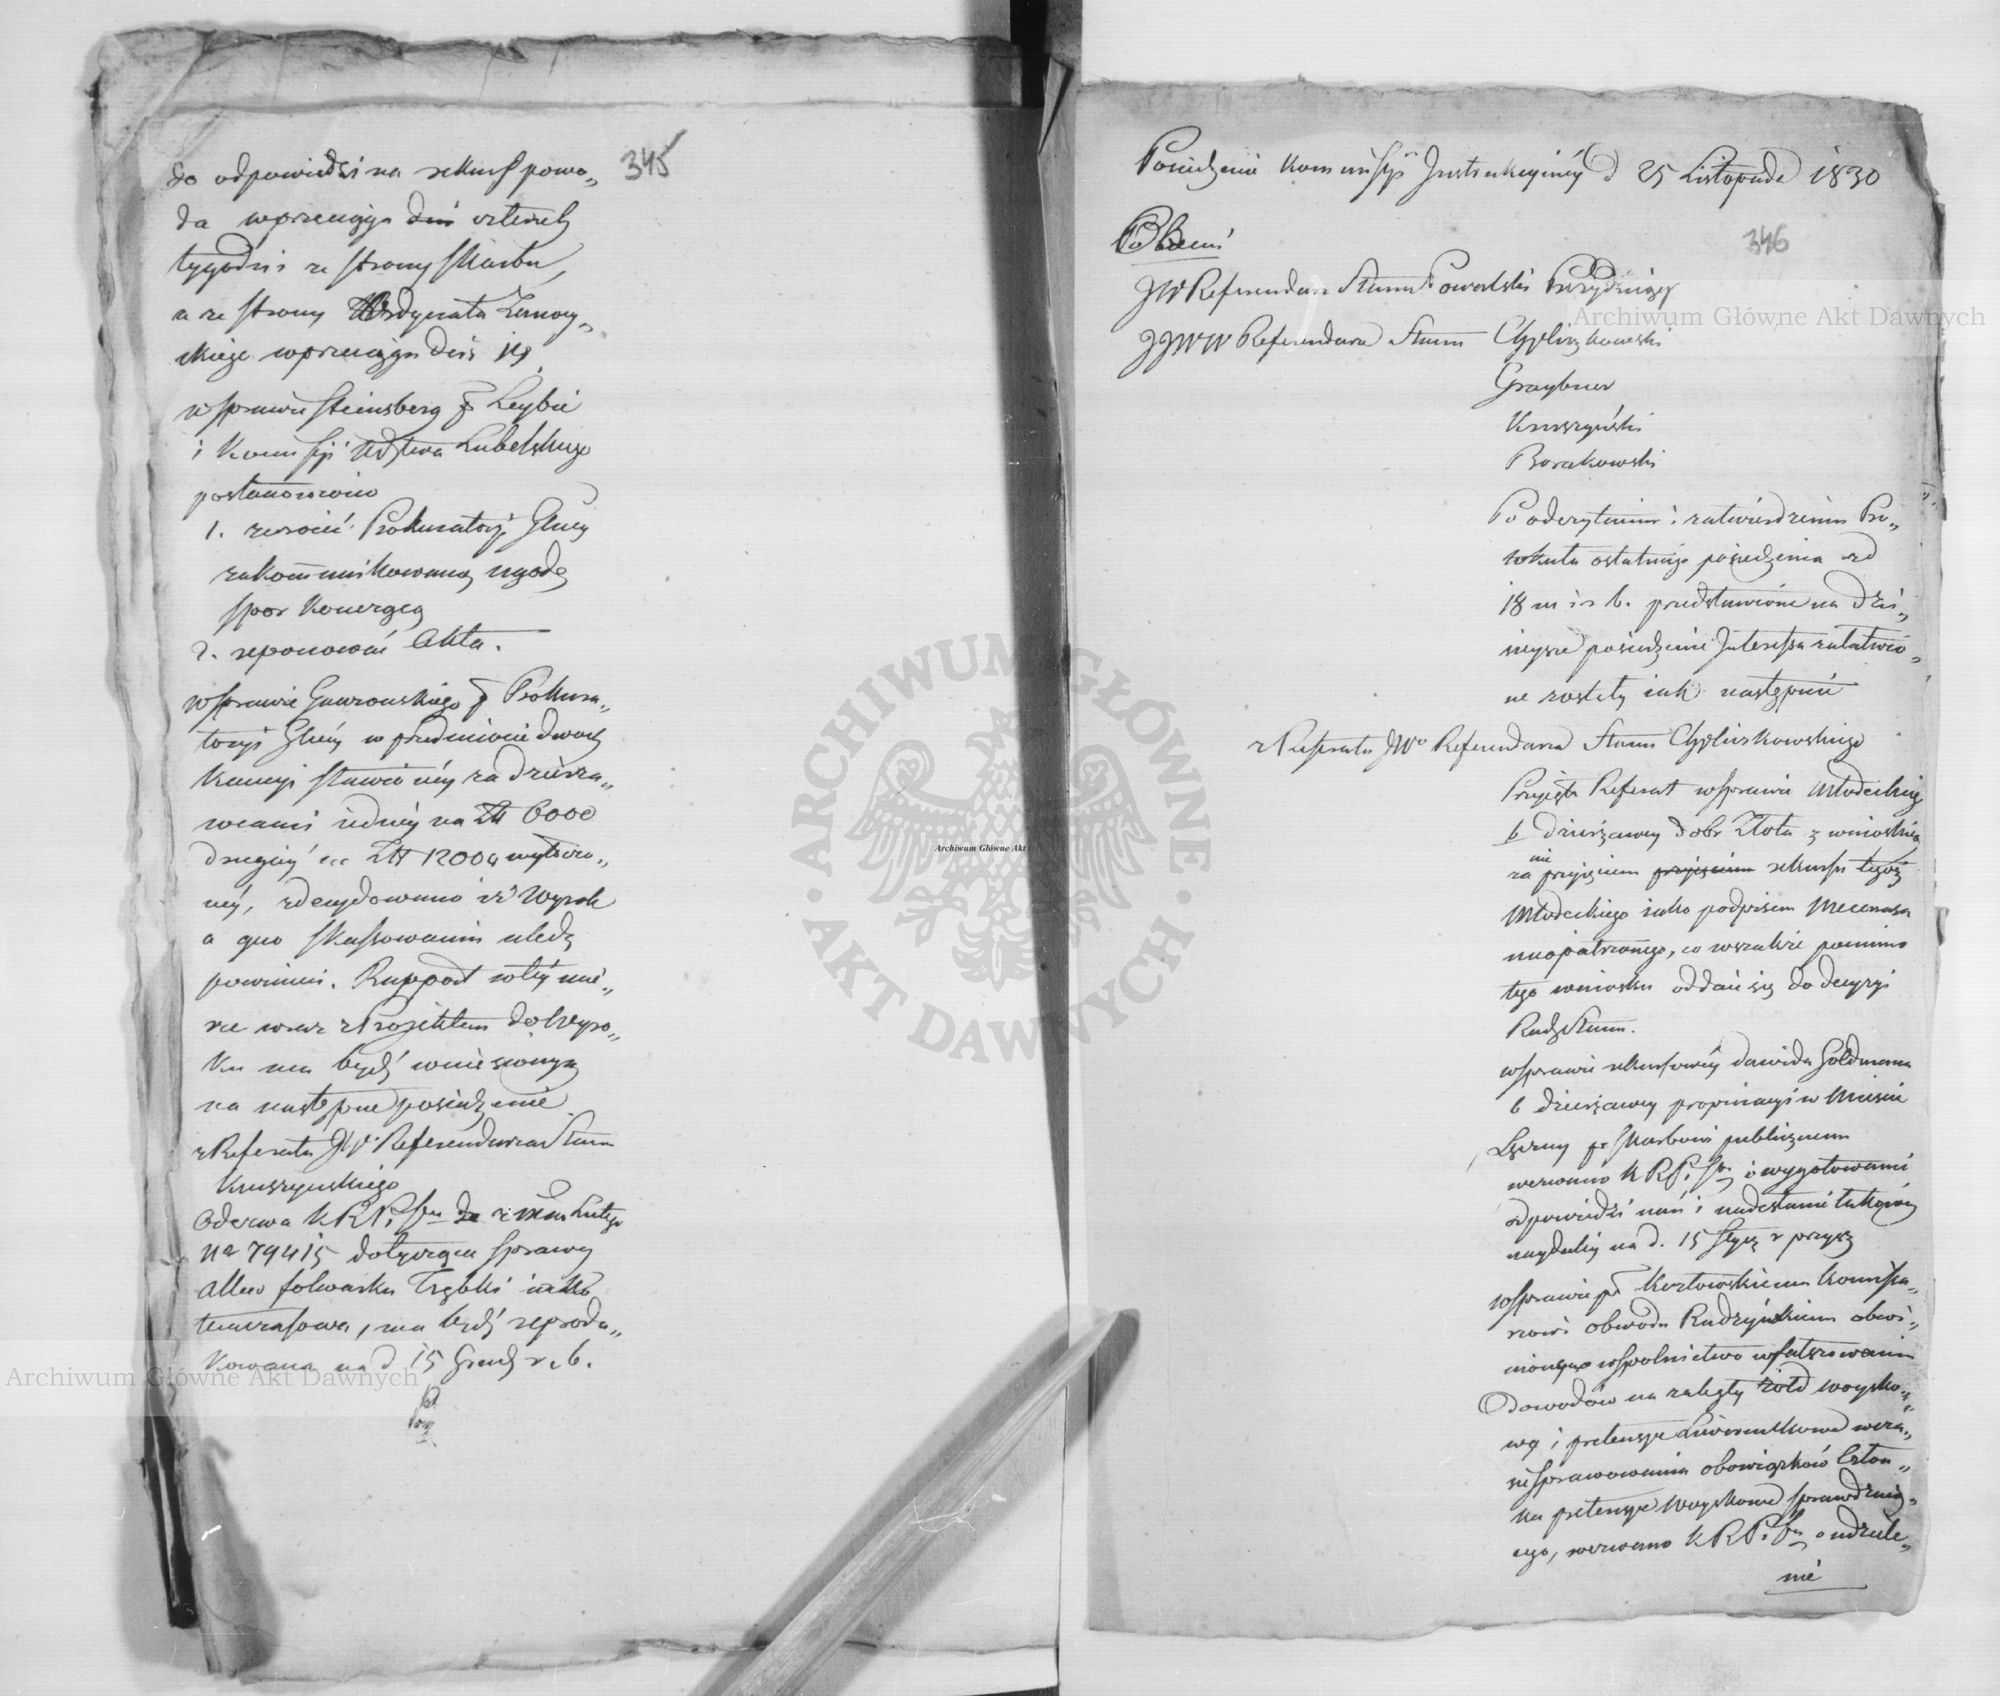 345
do odpowiedzi na rekurs powo„
da w przeciągu dni czterech
tygodni ze strony Skarbu,
a ze strony Ordynata Zamoy„
skiego w przeciągu dni 14.
w sprawie Steinsberg Leybie
i Komissyi Wdztwa Lubelskiego
postanowiono
1. zwrócić Prokuratoryi Głney
zakommunikowaną ugodę
spor kończącą
2. reponować Akta.
w sprawie Gawrońskiego Prokura„
toryi Głney w przedmiocie dwoch
kaucyi stawioney za dzierża„
wcami iedney na Zł 6000
drugiey na Zł 12000 wytoczo„
ney, zdecydowano iż wyrok
a quo skassowaniu uledz
powinien. Rapport w tey mie„
rze wraz z Projektem do Wyro„
ku ma bydź wniesionym
na następne posiedzenie
z Referatu JW. Referendarza Stanu
Kruszyńskiego
Odezwa KRPiSu z Lutego
Nr 79415 dotycząca sprawy
allew folwarku Trąbki iako
temczasowa, ma bydź reprodu„
kowana na d 15 Grud. r. b.
Posiedzenie Komissyi Instrukcyiney d 25 Listopada 1830
346
Obecni
JW Referendarz Stanu Kowalski Prezyduiący
JJWW Referendarze Stanu Chyliczkowski
Graybner
Kruszyński
Borakowski
Po odczytaniu i zatwierdzeniu Pro„
tokułu ostatniego posiedzenia z d
18 m i r b. przedstawione na dzi„
sieysze posiedzenie Interessa załatwio„
ne zostały iak następuie
z Referatu JWo Referendarza Stanu Chyliczkowskiego
Przyięto Referat w sprawie Młodeckiego
b dzierżawcy dobr Złota z wnioskiem
nie
za przyięciem przyięciem rekursu tegoż
Młodeckiego iako podpisem Mecenasa
nieopatrzonego, co wszakże pomimo
tego wniosku oddaie się do decyzyi
Rady Stanu.
w sprawie rekursowey Dawida Goldmana
b dzierżawcy propinacyi w Mieście
Łęczny pr Skarbowi publicznemu
wezwano KRPiSu o wygotowanie
odpowiedzi na i nadesłanie takowey
naydaley na d. 15 Stycz r przysz
w sprawie pr Kozłowskiemu Kommissa„
rzowi obwodu Radzyńskiem obwi„
nionego wspolnictwo w fałszowaniu
Dowodów na zaległy żołd woysko„
wy i pretensye Liwerunkowe w cza„
sie sprawowania obowiązków Człon„
ka pretensye woyskowe sprawdzaią„
cego, wezwano KRPiSu o udziele„
nie
Archiwum Główne Akt Dawnych
Archiwum Główne Akt Dawnych
Archiwum Główne Akt D
ARCHIWUM GŁÓWNE AKT DAWNYCH